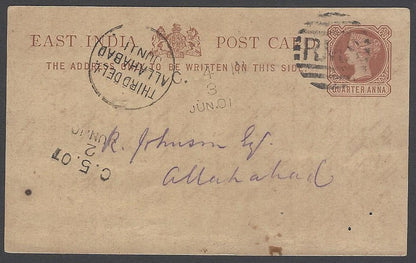 EAST INDIA POST CARD
THE ADDRESS TO BE WRITTEN ON THIS SIDE
QUARTER ANNA
THIRD DELY
ALLAHABAD
JUN.01
R. Johnson Esq.
Allahabad